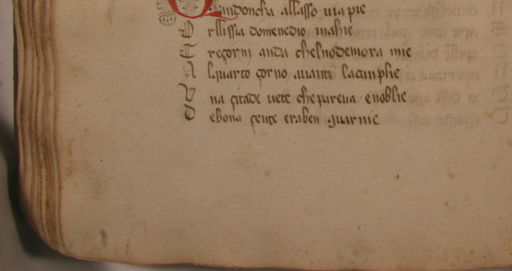 Quindoncha allasso uia pie
O rllissia domenedio mahie
T re çorni anda chelnodemora mie
A lquarto çorno auanti lacinplie
V na çitade uete chepareua enoblie
D ebona çente eraben guarnie